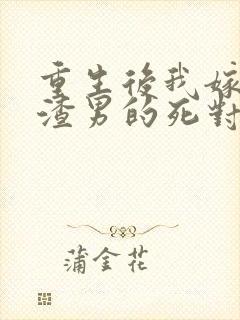 重生後我嫁
渣男的死對
蒲金花